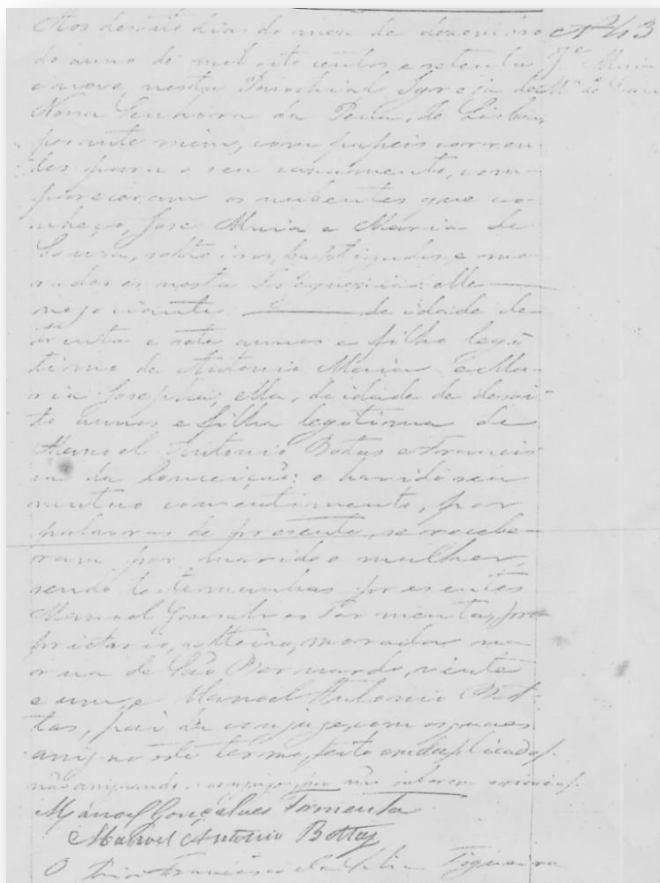 Aos dezoito dias do mez de dezembro Nº 43
do anno de mil oito centos e setenta Jé Maia
e nove, nesta Parochial Igreja de Mª de Sousa
Nossa Senhora da Pena, de Lisboa,
perante mim, com papeis corren-
tes para o seu casamento, com-
pareceram os nubentes que co-
nheço, José Maia e Maria de
Sousa, solteiros, baptizados, e mo-
radores nesta Freguezia: elle
negociante de idade de
trinta e sete annos e filho legi-
timo de Antonio Maia e Ma-
ria Josepha; ella, de idade de dezoi-
to annos e filha legitima de
Manoel Antonio Bottas e Francis-
ca da Conceição: e havido seu
mutuo consentimento, por
palavras de presente, se recebe-
ram por marido e mulher,
sendo testemunhas presentes
Manoel Gonsalves Tormenta, pro-
prietario, solteiro, morador na
rua de São Bernardo, vinte
e um, e Manoel Antonio Bot-
tas, pai da conjuge, com os quaes
assigno este termo, feito em duplicado,
não assignando os conjuges por não saberem escrever.
Mánoel Gonçalves Tormenta
Manoel Antonio Bottas
O Prior Francisco da Figueira